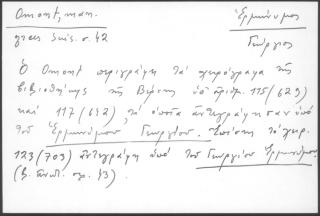 Omont, man.
grecs Suis. σ. 42
Ἑρμώνυμος
Γεώργιος
Ὁ Omont περιγράφει τὰ χειρόγραφα τῆς
βιβλιοθήκης τῆς Βέρνης ὑπ' ἀριθμ. 115 (629)
καὶ 117 (632), τὰ ὁποῖα ἀντεγράφησαν ὑπὸ
τοῦ Ἑρμωνύμου Γεωργίου. Ἐπίσης τὸ χειρ.
123 (703) ἀντεγράφη ὑπὸ τοῦ Γεωργίου Ἑρμωνύμου
(β. ἀνωτ. σ. 43).